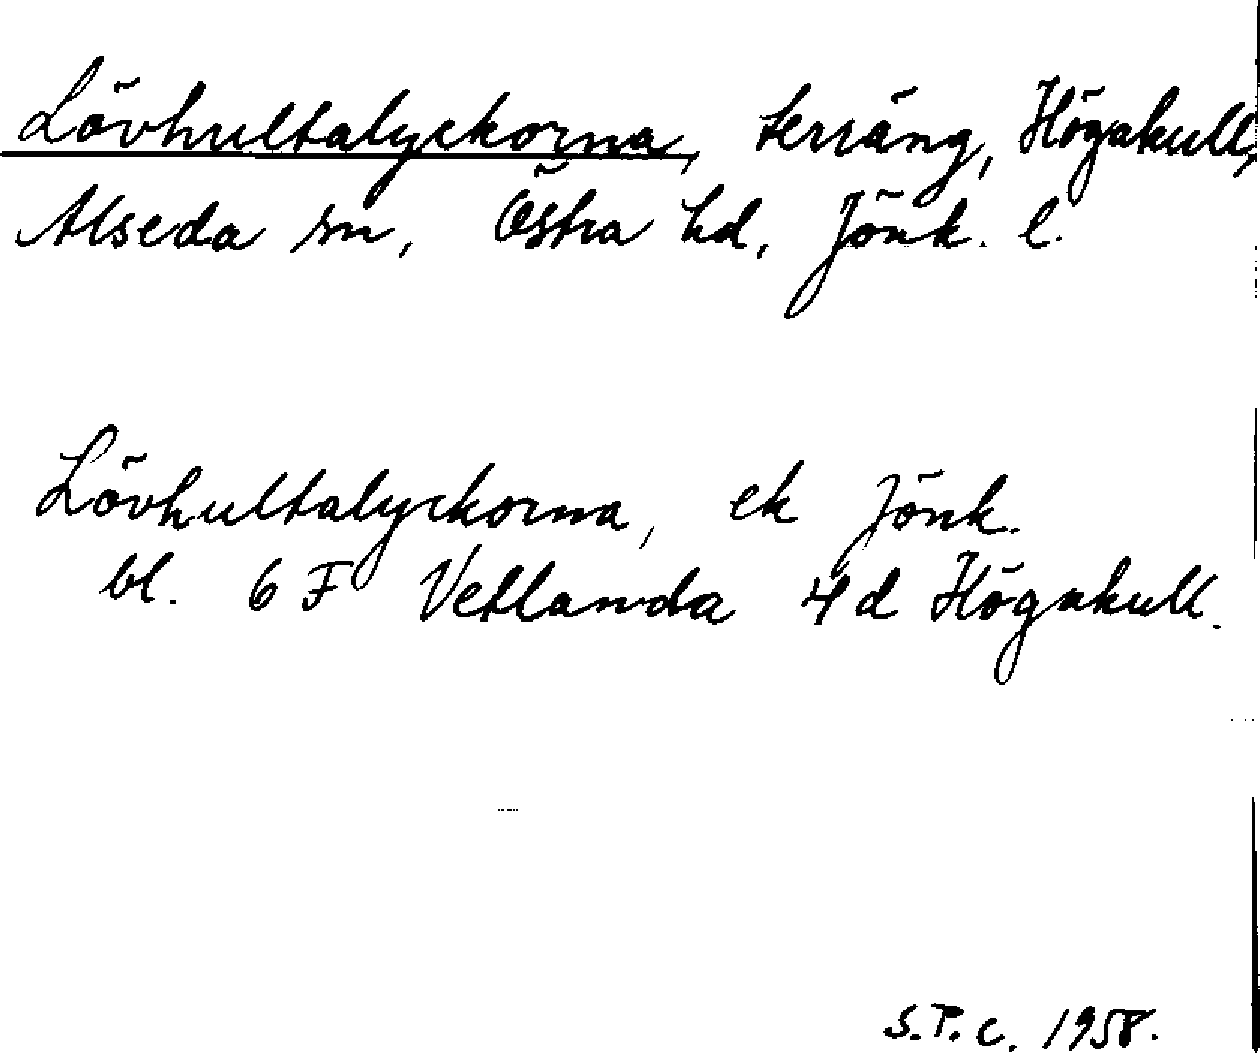 Lövhultalyckorna, terräng, Högakull,
Alseda sn, Östra hd, Jönk. l.
Lövhultalyckorna, ek Jönk.
bl. 6 F Vetlanda 4d Högakull.
S.P.C. 1958.